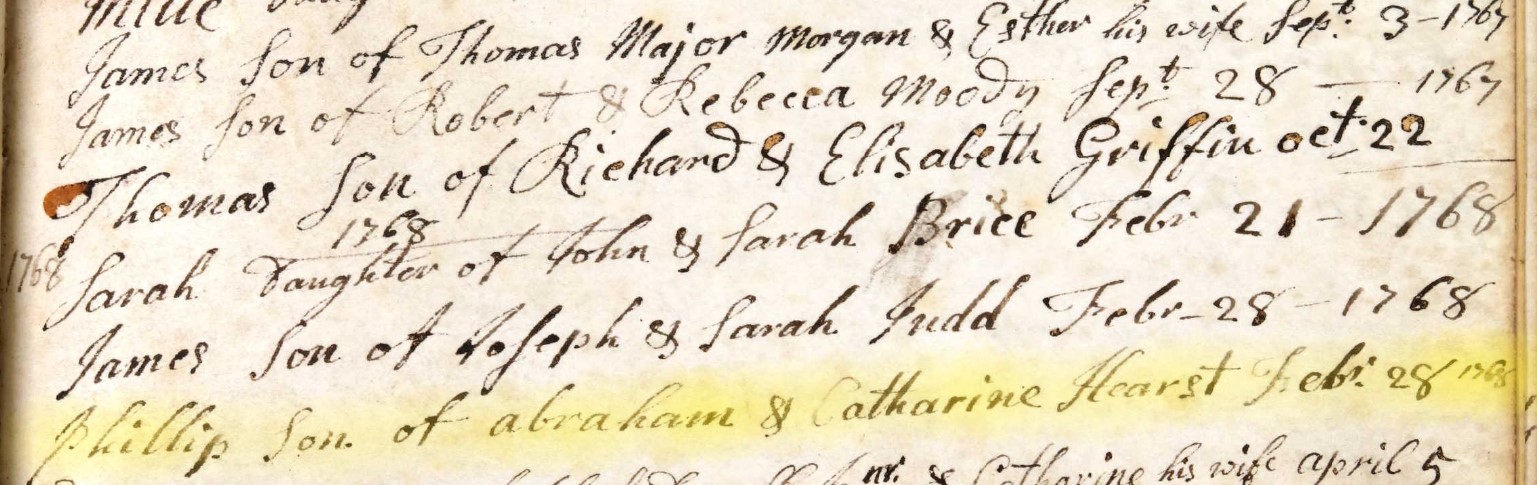 James Son of Thomas Major Morgan & Esther his wife Sept. 3 - 1767
James Son of Robert & Rebecca Moody Sept. 28 — 1767
Thomas Son of Richard & Elisabeth Griffin oct. 22
1768
1768 Sarah Daughter of John & Sarah Brice Febr 21 - 1768
James Son of Joseph & Sarah Judd Febr - 28 - 1768
Phillip Son of abraham & Catharine Hearst Febr. 28 1768
& Catharine his wife april 5